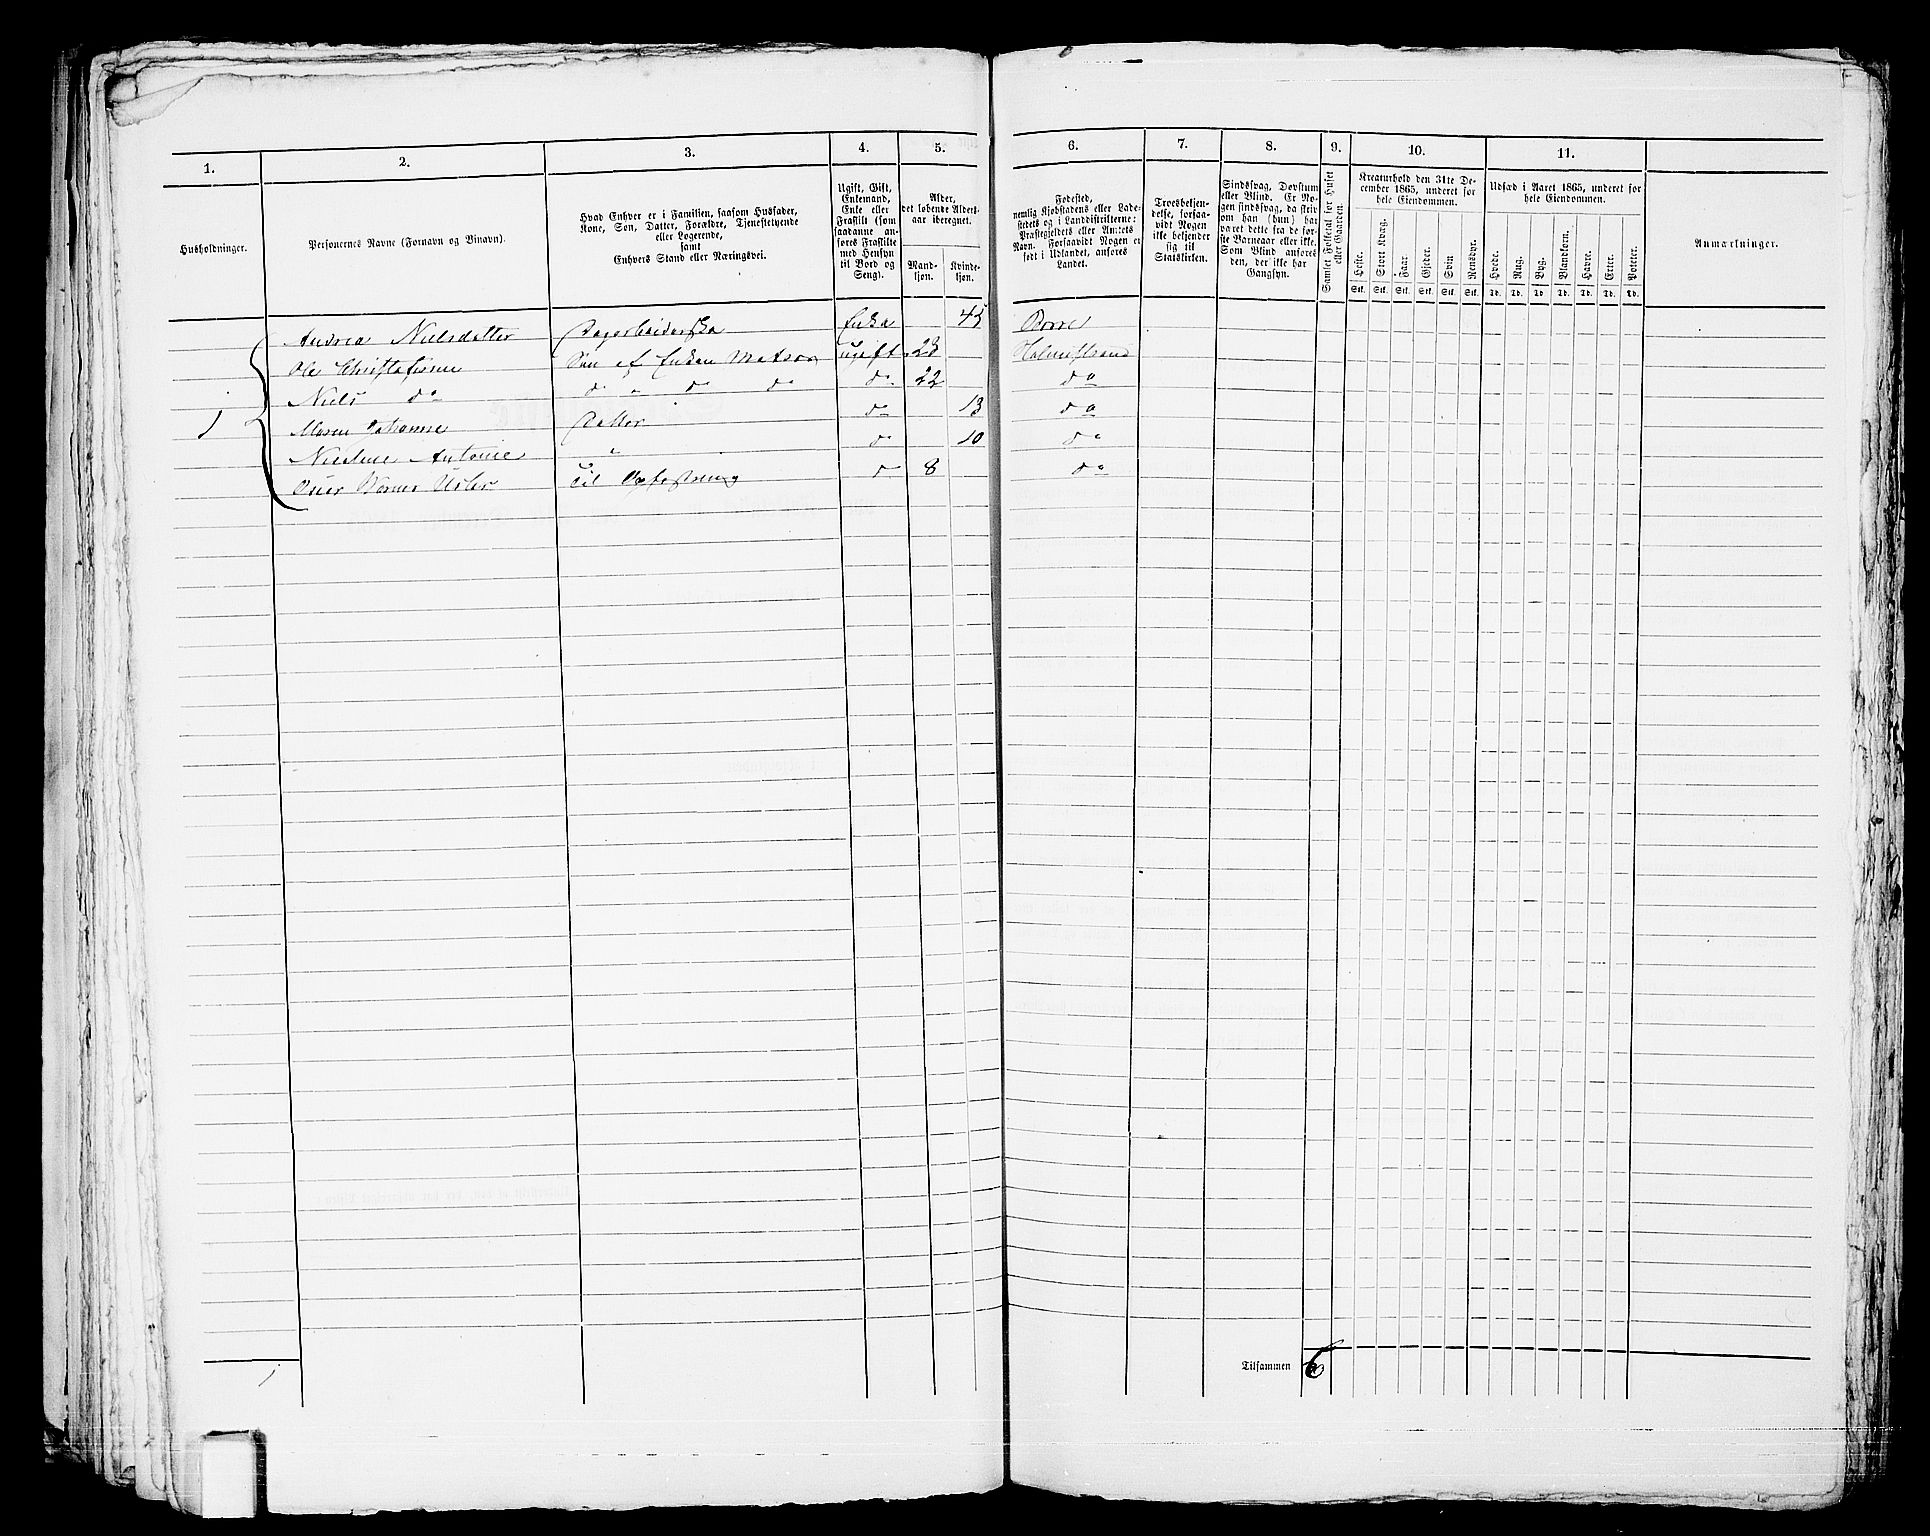 1.
2.
3.
4.
5.
6.
7.
8.
9.
10.
11.
Husholdninger.
Personernes Navne (Fornavn og Binavn).
Hvad Enhver er i Familien, saasom Husfader,
Kone, Søn, Datter, Forældre, Tjenestetyende
eller Logerende,
samt
Enhvers Stand eller Næringsvei.
Ugift, Gift,
Enkemand,
Enke eller
Fraskilt (som
saadanne an-
føres Fraskilte
med Hensyn
til Bord og
Seng).
Alder,
det løbende Alders-
aar iberegnet.
Mand-
kjøn.
Kvinde-
kjøn.
Fødested,
nemlig Kjøbstadens eller Lade-
stedets og i Landdistrikterne:
Præstegjeldets eller Amtets
Navn. Forsaavidt Nogen er
født i Udlandet, anføres
Landet.
Troesbekjen-
delse, forsaa-
vidt Nogen
ikke bekjender
sig til
Statskirken.
Sindssvag, Døvstum
eller Blind. Er No-
gen sindssvag, da skriv
om han (hun) har
været dette fra de før-
ste Barneaar eller ikke.
Som Blind anføres
den, der ikke har
Gangsyn.
Samlet Folketal for Huset
eller Gaarden.
Kreaturhold den 31te De-
cember 1865, underet for
hele Eiendommen.
Heste. Stort Kvæg. Faar. Gjeder. Svin Rensdyr.
Stk. Stk. Stk. Stk. Stk. Stk.
Udsæd i Aaret 1865, underet for
hele Eiendommen.
Hvede. Rug. Byg. Blandkorn. Havre. Erter. Poteter.
Td. Td. Td. Td. Td. Td. Td.
Anmærkninger.
Andrea Nielsdatter Dagarbeiderske Enke 45 Borre
Ole Christofersen Søn af Enken ugift 23 Holmestrand
Niels do do " do do do 22 do
1 Maren Johanne Datter do 13 do
Nicoline Antonie " do 10 do
til Opfostring d 8 do
Tilsammen 6
1